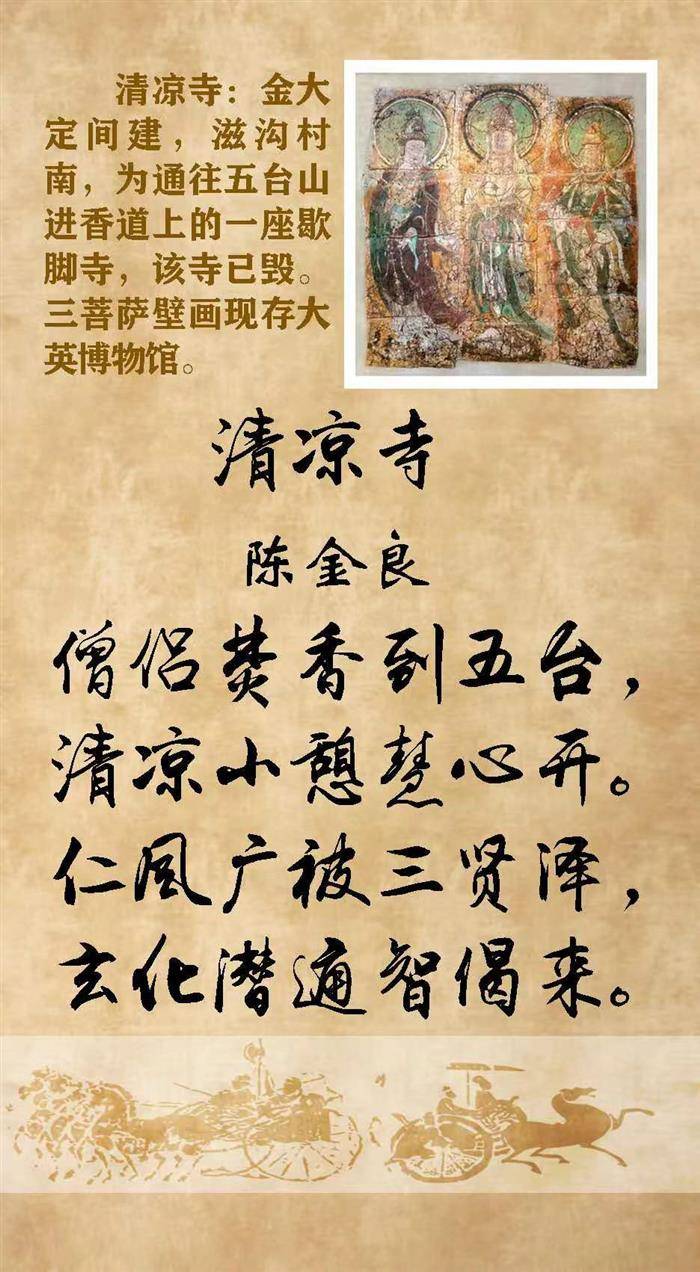 清凉寺：金大
定间建，滋沟村
南，为通往五台山
进香道上的一座歇
脚寺，该寺已毁。
三菩萨壁画现存大
英博物馆。
清凉寺
陈金良
僧侣焚香到五台，
清凉小憩慧心开。
仁风广被三贤泽，
玄化潜通智偈来。